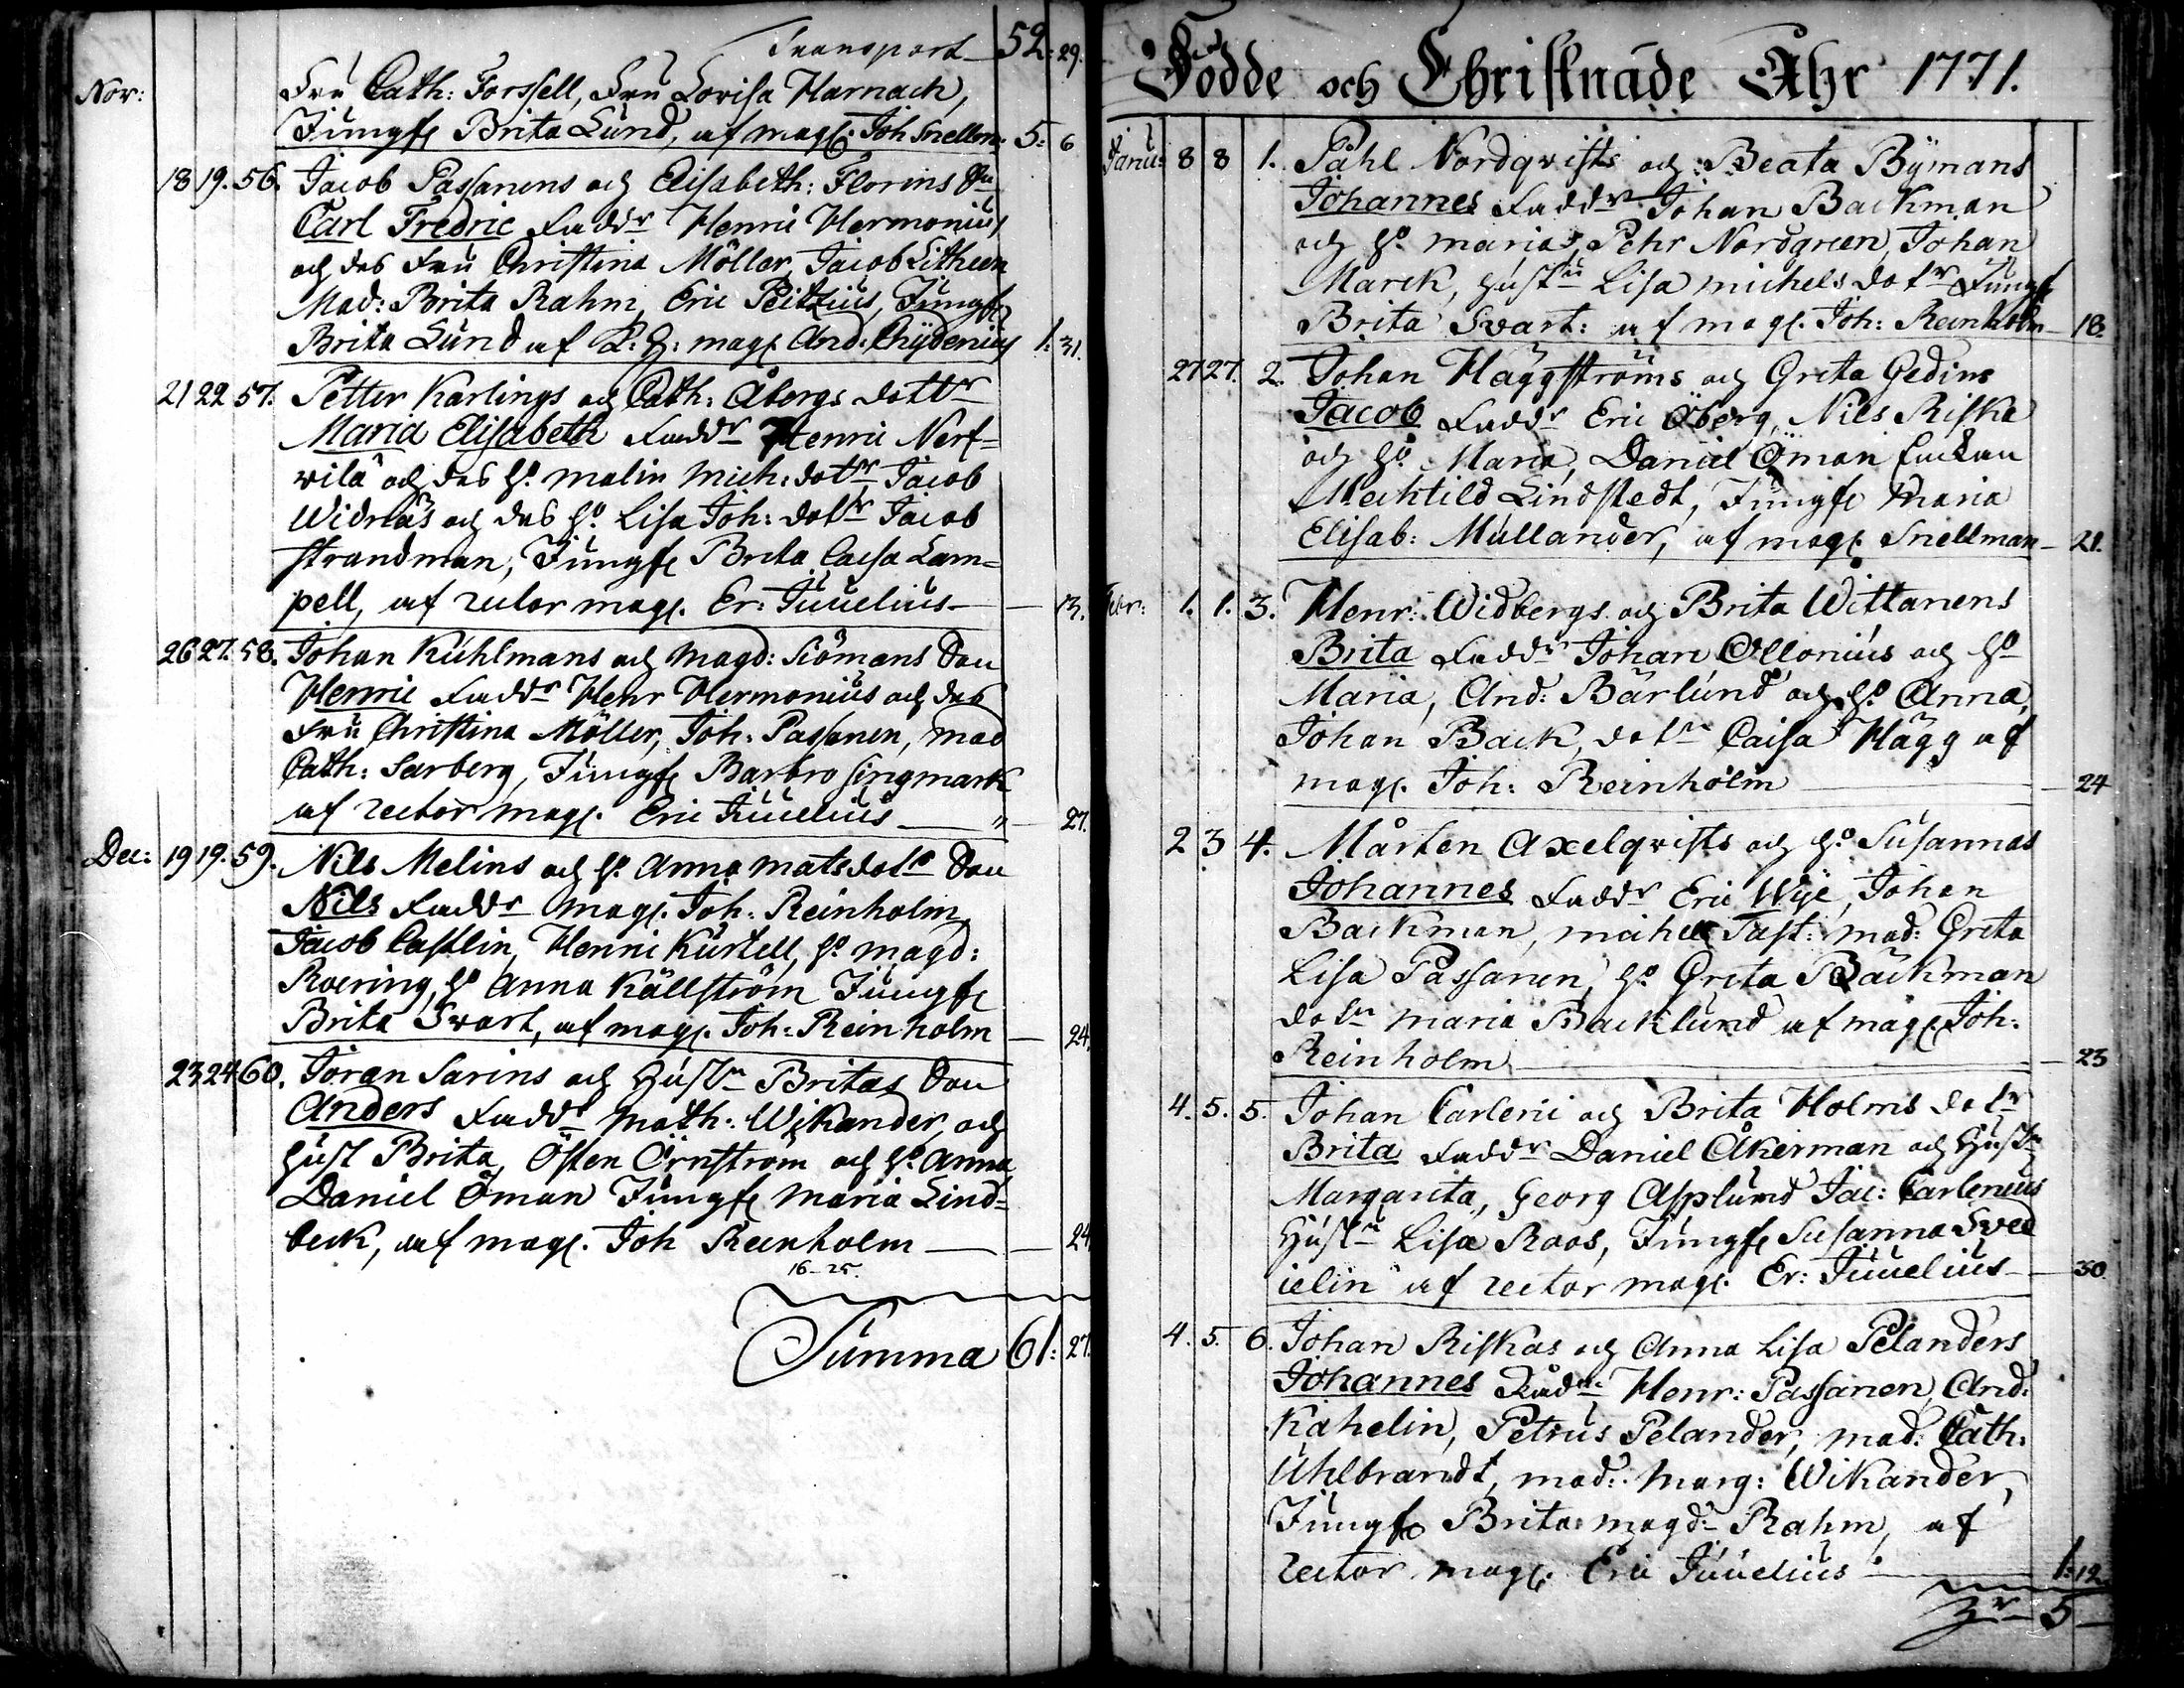 Transport 52: 29.
Nov: Fru Cath: Forssell, Fru Lovisa Harnach,
Jungfr Brita Lund, af mag. Joh Snellm: 5: 6
18 19. 56. Jacob Passanens och Elisabeth: Florins Son
Carl Fredric Faddr Henric Hermonius
och des Fru Christina Möller, Jacob Litheen
Mad: Brita Rahm, Eric Peitzius, Jungfr
Brita Lund af mag. And. Chydenius 1: 31.
21 22 57. Petter Karlings och Cath: Åbergs dottr
Maria Elisabeth Faddr Henric Nerf=
vilä och des h. malin Mich: dottr, Jacob
Widnäs och des h. Lisa Joh: dottr Jacob
strandman, Jungfr Brita Caisa Lam=
pell, af rector mag. Er: Juvelius — 13.
26 27. 58. Johan Kuhlmans och magd: Siömans Son
Henric Faddr Henr Hermonius och des
Fru Christina Möller, Joh. Passanen, mad
Cath: Sarberg, Jungfr Barbro Singmark
af rector mag. Eric Juvelius — " 27.
Dec: 19 19. 59. Nils Melins och h. Anna matsdotr Son
Nils Faddr mag. Joh: Reinholm,
Jacob Castlin, Henric Kurtell, h. magd:
Roering, h. Anna Källström Jungfr
Brita Svart, af mag. Joh: Reinholm — 24.
23 24 60. Jöran Sarins och Hustr Britas Son
Anders Faddr Math: Wikander, och
Hust Brita, Östen Örnström och h. Anna
Daniel Öman Jungfr Maria Lind=
beck, af mag. Joh Reinholm — 24
16–25.
Summa 61: 27.
Födde och Christnade Åhr 1771.
Janu: 8 8 1. Påhl Nordqvists och Beata Bÿmans
Johannes Faddr: Johan Backman
och h. maria, Pehr Nordgreen, Johan
Marck, Hustru Lisa michels dotr Jungf
Brita Svart: af mag. Joh: Reinholm — 18.
27 27. 2. Johan Häggströms och Greta Gedins
Jacob Faddr Eric Öberg, Nils Riska
och h. Maria, Daniel Öman Enckan
Mechtild Lindstedt, Jungfr Maria
Elisab: Mullander, af mag. Snellman — 21.
Febr: 1. 1. 3. Henr: Widbergs och Brita Wittanens
Brita Faddr Johan Ollonius och h
Maria, And: Bärlund och h. Anna,
Johan Back, dotr Caisa Hägg af
mag. Joh: Reinholm — 24
2 3 4. Mårten Axelqvists och h. Susannas
Johannes Faddr Eric Wije, Johan
Backman, michel Tast: mad: Greta
Lisa Passanen, h. Greta Bäckman
dotr maria Backlund af mag. Joh:
Reinholm — 23
4. 5. 5. Johan Carlenii och Brita Holms dotr
Brita Faddr Daniel Åkerman och Hustr
Margareta, Georg Asplund Jac: Carlenius
Hustr Lisa Roos, Jungfr Susanna Sved
ielin af rector mag. Er: Juvelius — 30
4. 5. 6. Johan Riskas och Anna Lisa Pelanders
Johannes Faddr: Henr: Passanen, And:
Kahelin, Petrus Pelander, mad: Cath:
Uhlbrandt, mad: Marg: Wikander,
Jungfr Brita magd: Rahm, af
rector mag. Eric Juvelius — 1: 12
5 —